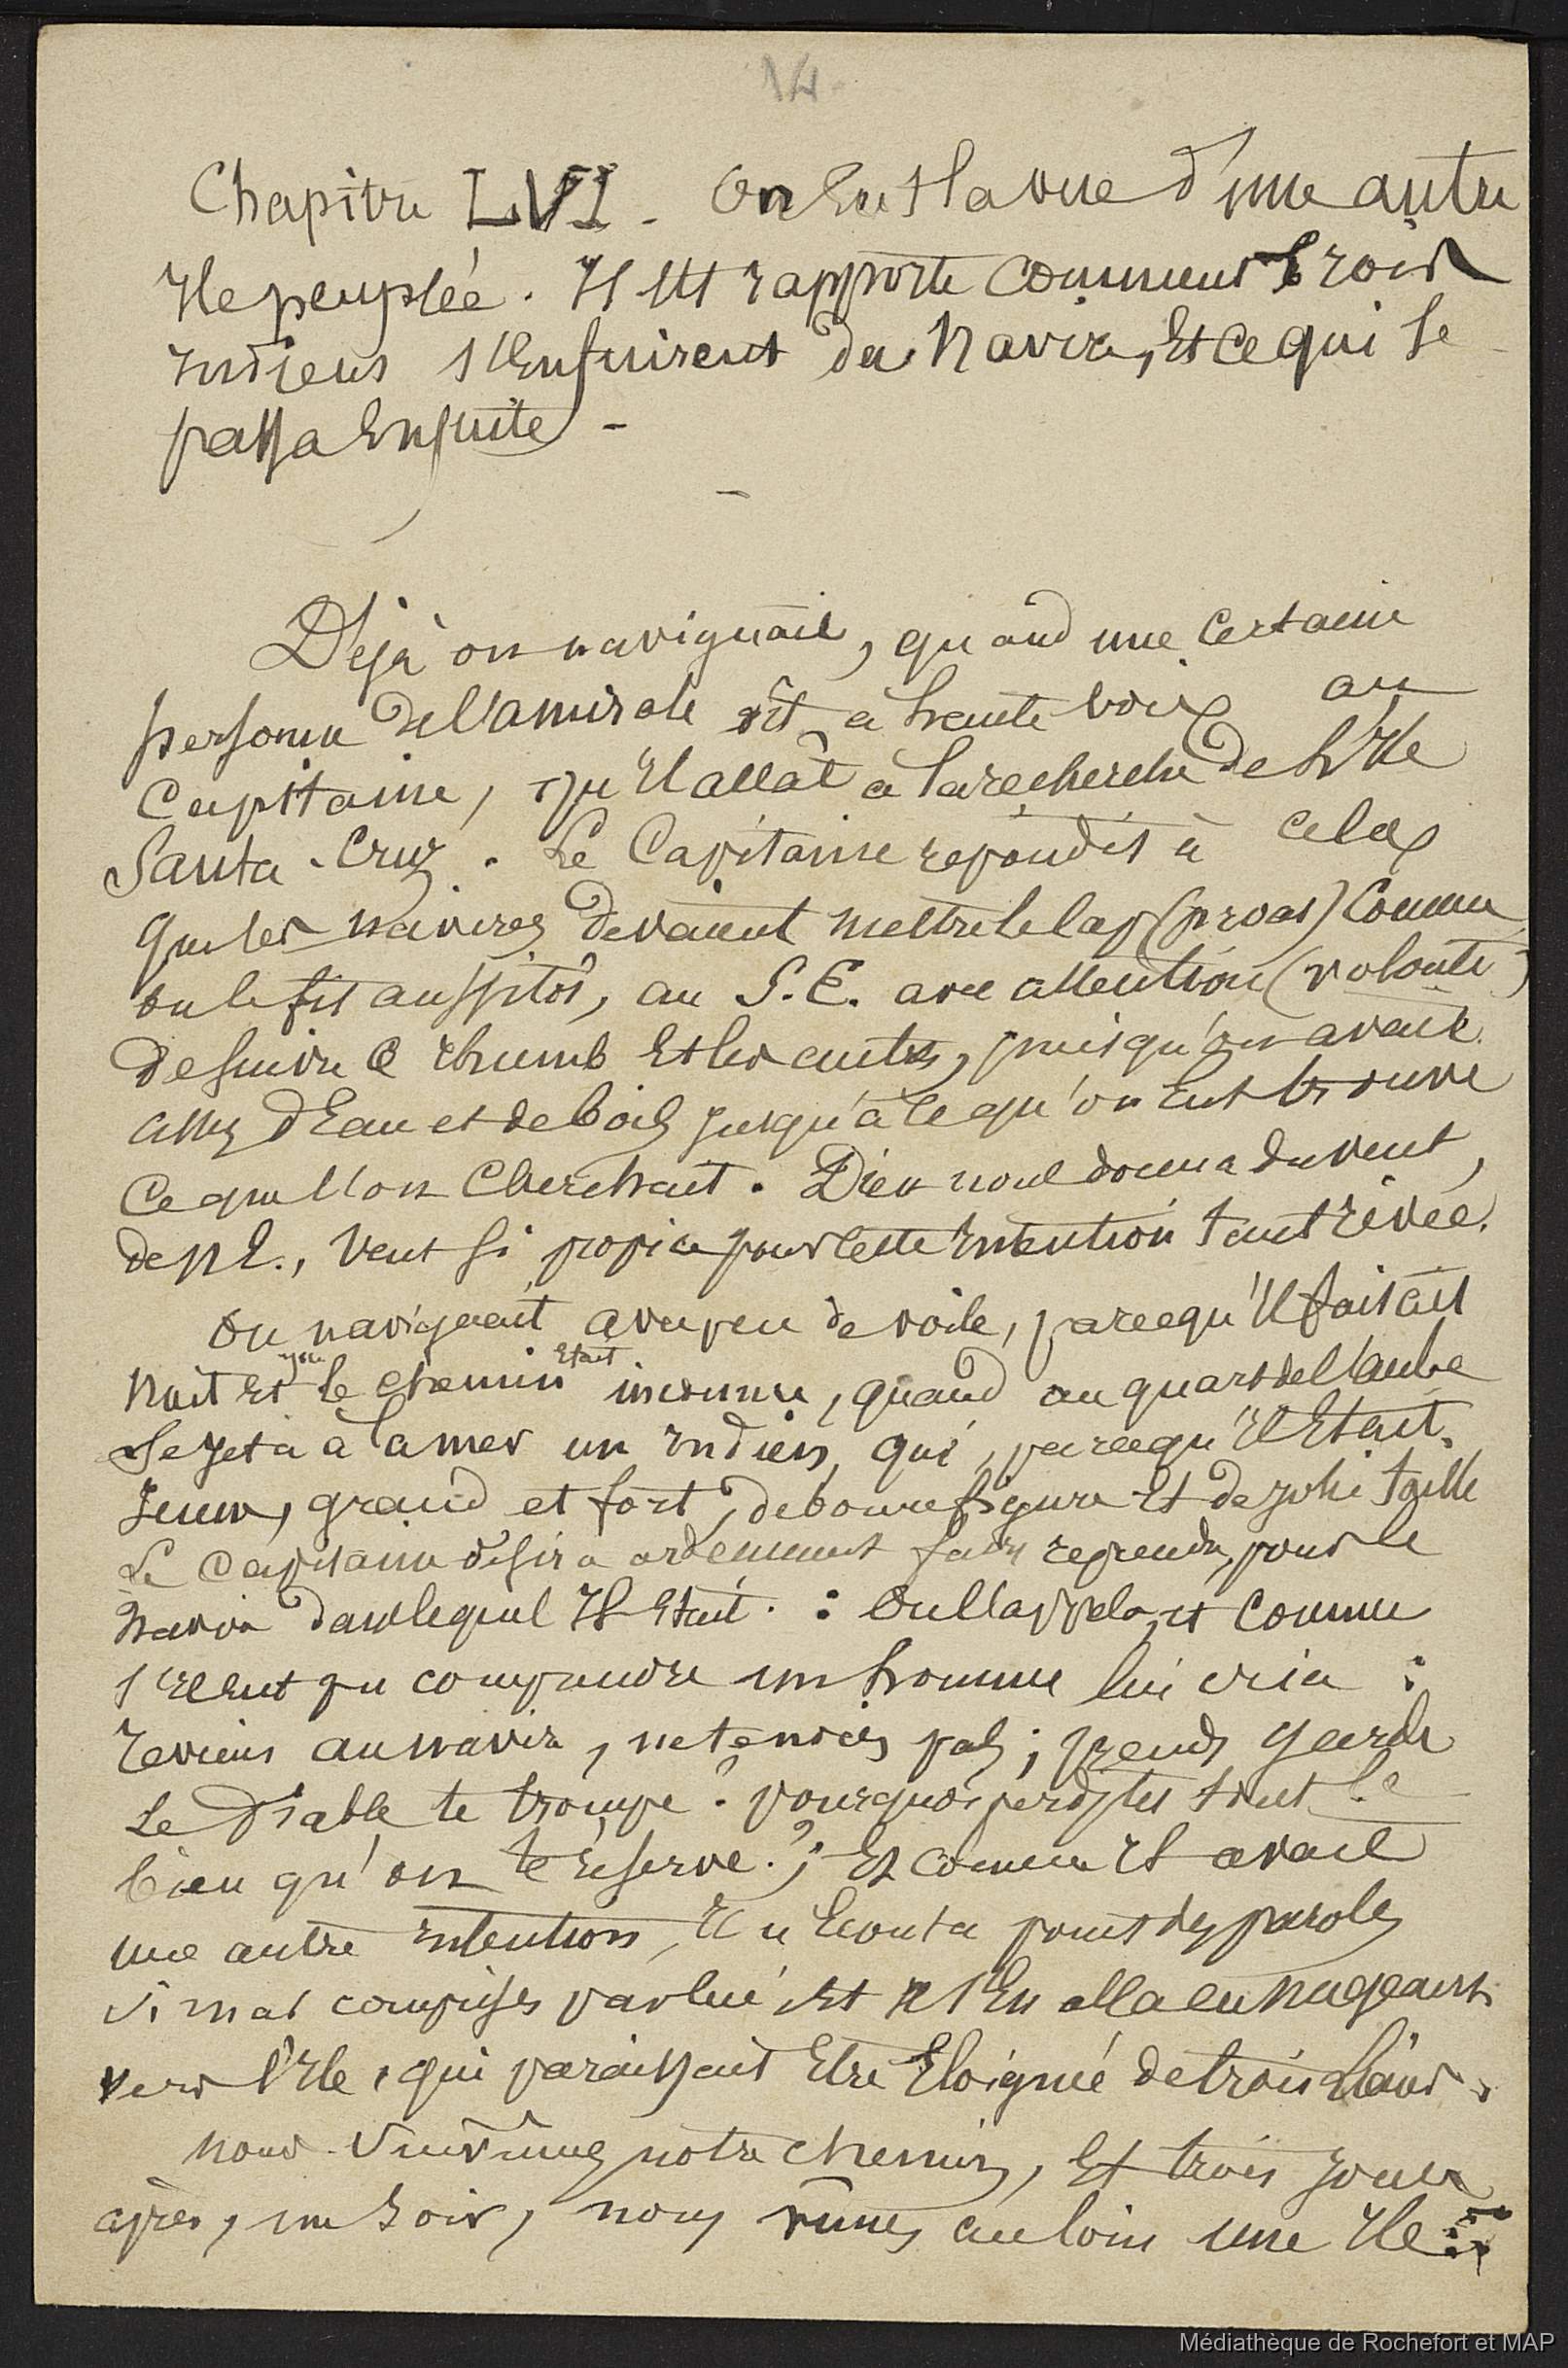 14
Chapitre LVI. On eut la vue d'une autre
Ile peuplée. Il est rapporté comment trois
Indiens s'enfuirent du navire, et ce qui se
passa ensuite -
Déjà on naviguait, quand une certaine
personne de l'amirale dit à haute voix au
capitaine, qu'il allât à la recherche de l'Ile
Santa-Cruz. Le Capitaine répondit à cela
que les navires devaient mettre le cap (proas) comme
on le fit aussitôt, au S.E. avec attention (volonté)
de suivre ce rhumb et les autres, puisqu'on avait
assez d'eau et de bois jusqu'à ce qu'on eut trouvé
ce que l'on cherchait. Dieu nous donna du vent,
de N E., vent si propice pour cette intention tant rêvée.
On naviguait avec peu de voile, parcequ'il faisait
nuit et que le chemin était inconnu, quand au quart de l'aube
se jeta à la mer un indien, qui, parcequ'il était
jeune, grand et fort, de bonne figure et de jolie taille
Le capitaine désira ardemment faire reprendre, pour le
navire dans lequel il était. : On l'appela, et comme
s'il eut pu comprendre un homme lui cria :
reviens au navire, ne te noies pas ; prends garde
le diable te trompe : pourquoi perds-tu tout le
bien qu'on te réserve ? ; et comme il avait
une autre intention, il n'écouta point des paroles
si mal comprises par lui et s'en alla en nageant
vers l'Ile, qui paraissait être éloignée de trois lieues.
nous suivîmes notre chemin, et trois jours
après, un soir, nous vîmes au loin une Ile
Médiathèque de Rochefort et MAP